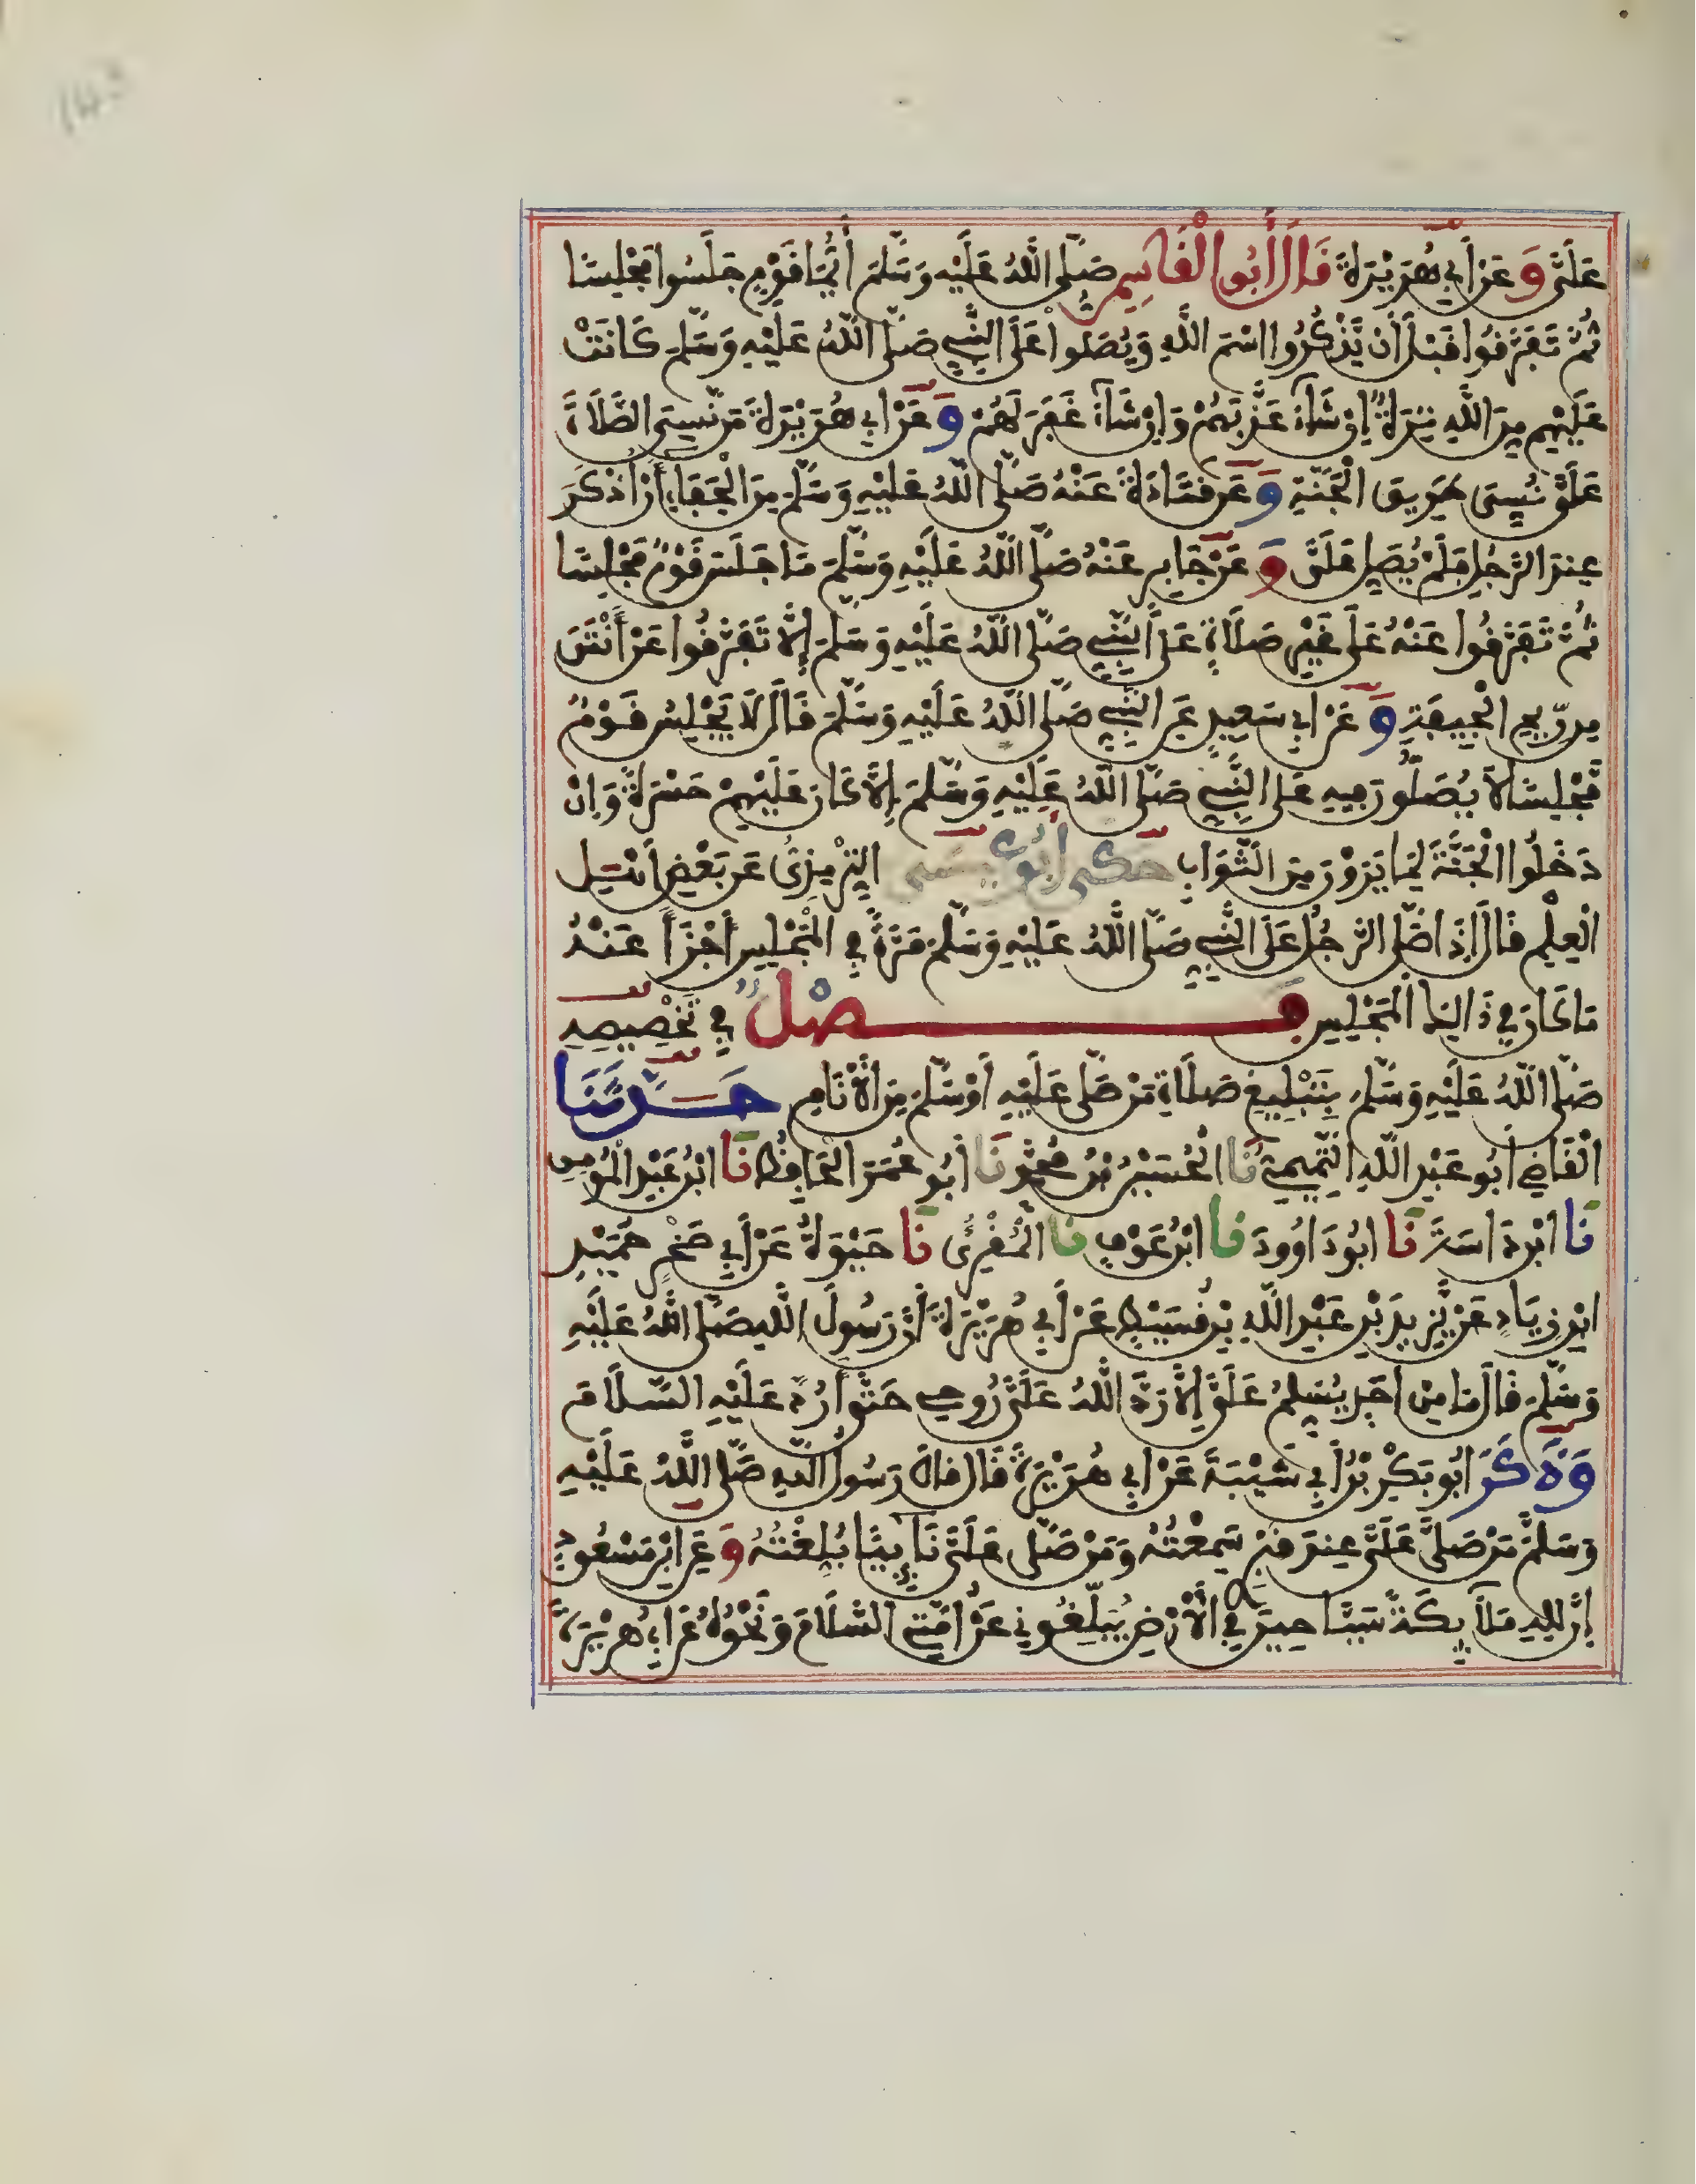 عَلَيَّ وَعَنْ أَبِي هُرَيْرَةَ قَالَ أَبُو الْقَاسِمِ صَلَّى اللَّهُ عَلَيْهِ وَسَلَّمَ أَيُّمَا قَوْمٍ جَلَسُوا مَجْلِسًا
ثُمَّ تَفَرَّقُوا قَبْلَ أَنْ يَذْكُرُوا اسْمَ اللَّهِ وَيُصَلُّوا عَلَى النَّبِيِّ صَلَّى اللَّهُ عَلَيْهِ وَسَلَّمَ كَانَتْ
عَلَيْهِم مِنَ اللَّهِ تِرَةٌ إِنْ شَاءَ عَذَّبَهُمْ وَإِنْ شَاءَ غَفَرَ لَهُمْ وَعَنْ أَبِي هُرَيْرَةَ مَنْ نَسِيَ الصَّلَاةَ
عَلَيَّ نُسِيَ طَرِيقَ الْجَنَّةِ وَعَنْ قَتَادَةَ عَنْهُ صَلَّى اللَّهُ عَلَيْهِ وَسَلَّمَ مِنَ الْجَفَاءِ أَنْ أُذْكَرَ
عِنْدَ الرَّجُلِ فَلَمْ يُصَلِّ عَلَيَّ وَعَنْ جَابِرٍ عَنْهُ صَلَّى اللَّهُ عَلَيْهِ وَسَلَّمَ مَا جَلَسَ قَوْمٌ مَجْلِسًا
ثُمَّ تَفَرَّقُوا عَنْهُ عَلَى غَيْرِ صَلَاةٍ عَلَى النَّبِيِّ صَلَّى اللَّهُ عَلَيْهِ وَسَلَّمَ إِلَّا تَفَرَّقُوا عَنْ أَنْتَنَ
مِن رِّيحِ الْجِيفَةِ وَعَنْ أَبِي سَعِيدٍ عَنِ النَّبِيِّ صَلَّى اللَّهُ عَلَيْهِ وَسَلَّمَ قَالَ لَا يَجْلِسُ قَوْمٌ
مَّجْلِسًا لَا يُصَلُّونَ فِيهِ عَلَى النَّبِيِّ صَلَّى اللَّهُ عَلَيْهِ وَسَلَّمَ إِلَّا كَانَ عَلَيْهِمْ حَسْرَةً وَإِنْ
دَخَلُوا الْجَنَّةَ لِمَا يَرَوْنَ مِنَ الثَّوَابِ حَكَى أَبُو عِيسَى التِّرْمِذِيُّ عَنْ بَعْضِ أَهْلِ
الْعِلْمِ قَالَ إِذَا صَلَّى الرَّجُلُ عَلَى النَّبِيِّ صَلَّى اللَّهُ عَلَيْهِ وَسَلَّمَ مَرَّةً فِي الْمَجْلِسِ أَجْزَأَ عَنْهُ
مَا كَانَ فِي ذَالِكَ الْمَجْلِسِ فَصْلٌ فِي تَخْصِيصِهِ
صَلَّى اللَّهُ عَلَيْهِ وَسَلَّمَ بِتَبْلِيغِ صَلَاةِ مَنْ صَلَّى عَلَيْهِ أَوْ سَلَّمَ مِنَ الْأَنَامِ حَدَّثَنَا
الْقَاضِي أَبُو عَبْدِ اللَّهِ التَّمِيمِيُّ نَا الْحُسَيْنُ بْنُ مُحَمَّدٍ نَا أَبُو عُمَرَ الْحَافِظُ نَا ابْنُ عَبْدِ الْمُؤْمِنِ
نَا ابْنُ دَاسَةَ نَا أَبُو دَاوُودَ نَا ابْنُ عَوْفٍ نَا الْمُقْرِئُ نَا حَيْوَةُ عَنْ أَبِي صَخْرٍ حُمَيْدِ
ابْنِ زِيَادٍ عَنْ يَزِيدَ بْنِ عَبْدِ اللَّهِ بْنِ قُسَيْطٍ عَنْ أَبِي هُرَيْرَةَ أَنَّ رَسُولَ اللَّهِ صَلَّى اللَّهُ عَلَيْهِ
وَسَلَّمَ قَالَ مَا مِنْ أَحَدٍ يُسَلِّمُ عَلَيَّ إِلَّا رَدَّ اللَّهُ عَلَيَّ رُوحِي حَتَّى أَرُدَّ عَلَيْهِ السَّلَامَ
وَذَكَرَ أَبُو بَكْرِ بْنُ أَبِي شَيْبَةَ عَنْ أَبِي هُرَيْرَةَ قَالَ قَالَ رَسُولُ اللَّهِ صَلَّى اللَّهُ عَلَيْهِ
وَسَلَّمَ مَنْ صَلَّى عَلَيَّ عِنْدَ قَبْرِي سَمِعْتُهُ وَمَنْ صَلَّى عَلَيَّ نَائِيًا بُلِّغْتُهُ وَعَنِ ابْنِ مَسْعُودٍ
إِنَّ لِلَّهِ مَلَائِكَةً سَيَّاحِينَ فِي الْأَرْضِ يُبَلِّغُونِي عَنْ أُمَّتِي السَّلَامَ وَنَحْوُهُ عَنْ أَبِي هُرَيْرَةَ